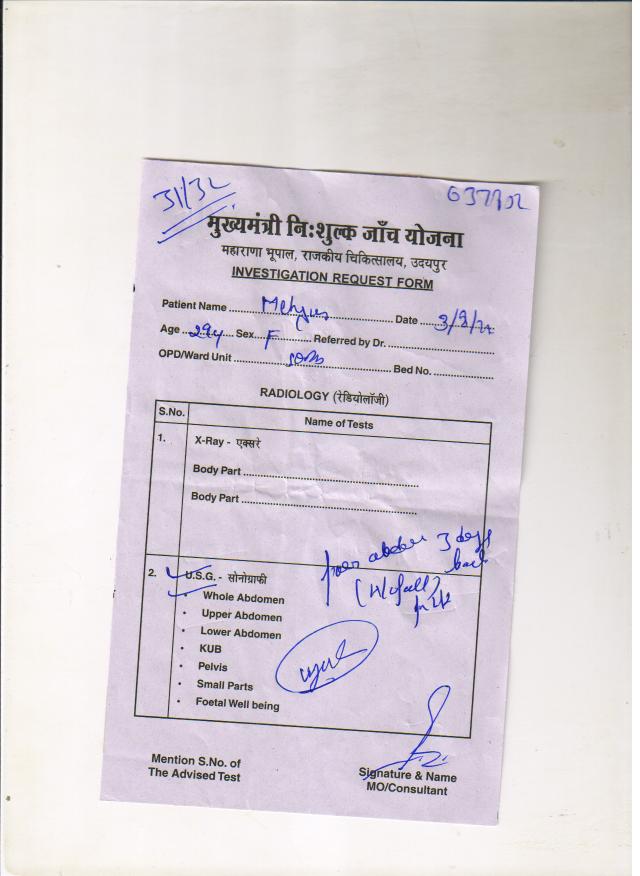 31/32
मुख्यमंत्री निःशुल्क जाँच योजना
महाराणा भूपाल, राजकीय चिकित्सालय, उदयपुर
INVESTIGATION REQUEST FORM
Patient Name Date
Age 29y Sex F Referred by Dr.
OPD/Ward Unit Bed No.
RADIOLOGY (रेडियोलॉजी)
S.No. Name of Tests
1. X-Ray - एक्सरे
Body Part
Body Part
3 days
back
(H/o fall)
2. U.S.G. - सोनोग्राफी
• Whole Abdomen
• Upper Abdomen
• Lower Abdomen
• KUB
• Pelvis
• Small Parts
• Foetal Well being
Mention S.No. of
The Advised Test
Signature & Name
MO/Consultant